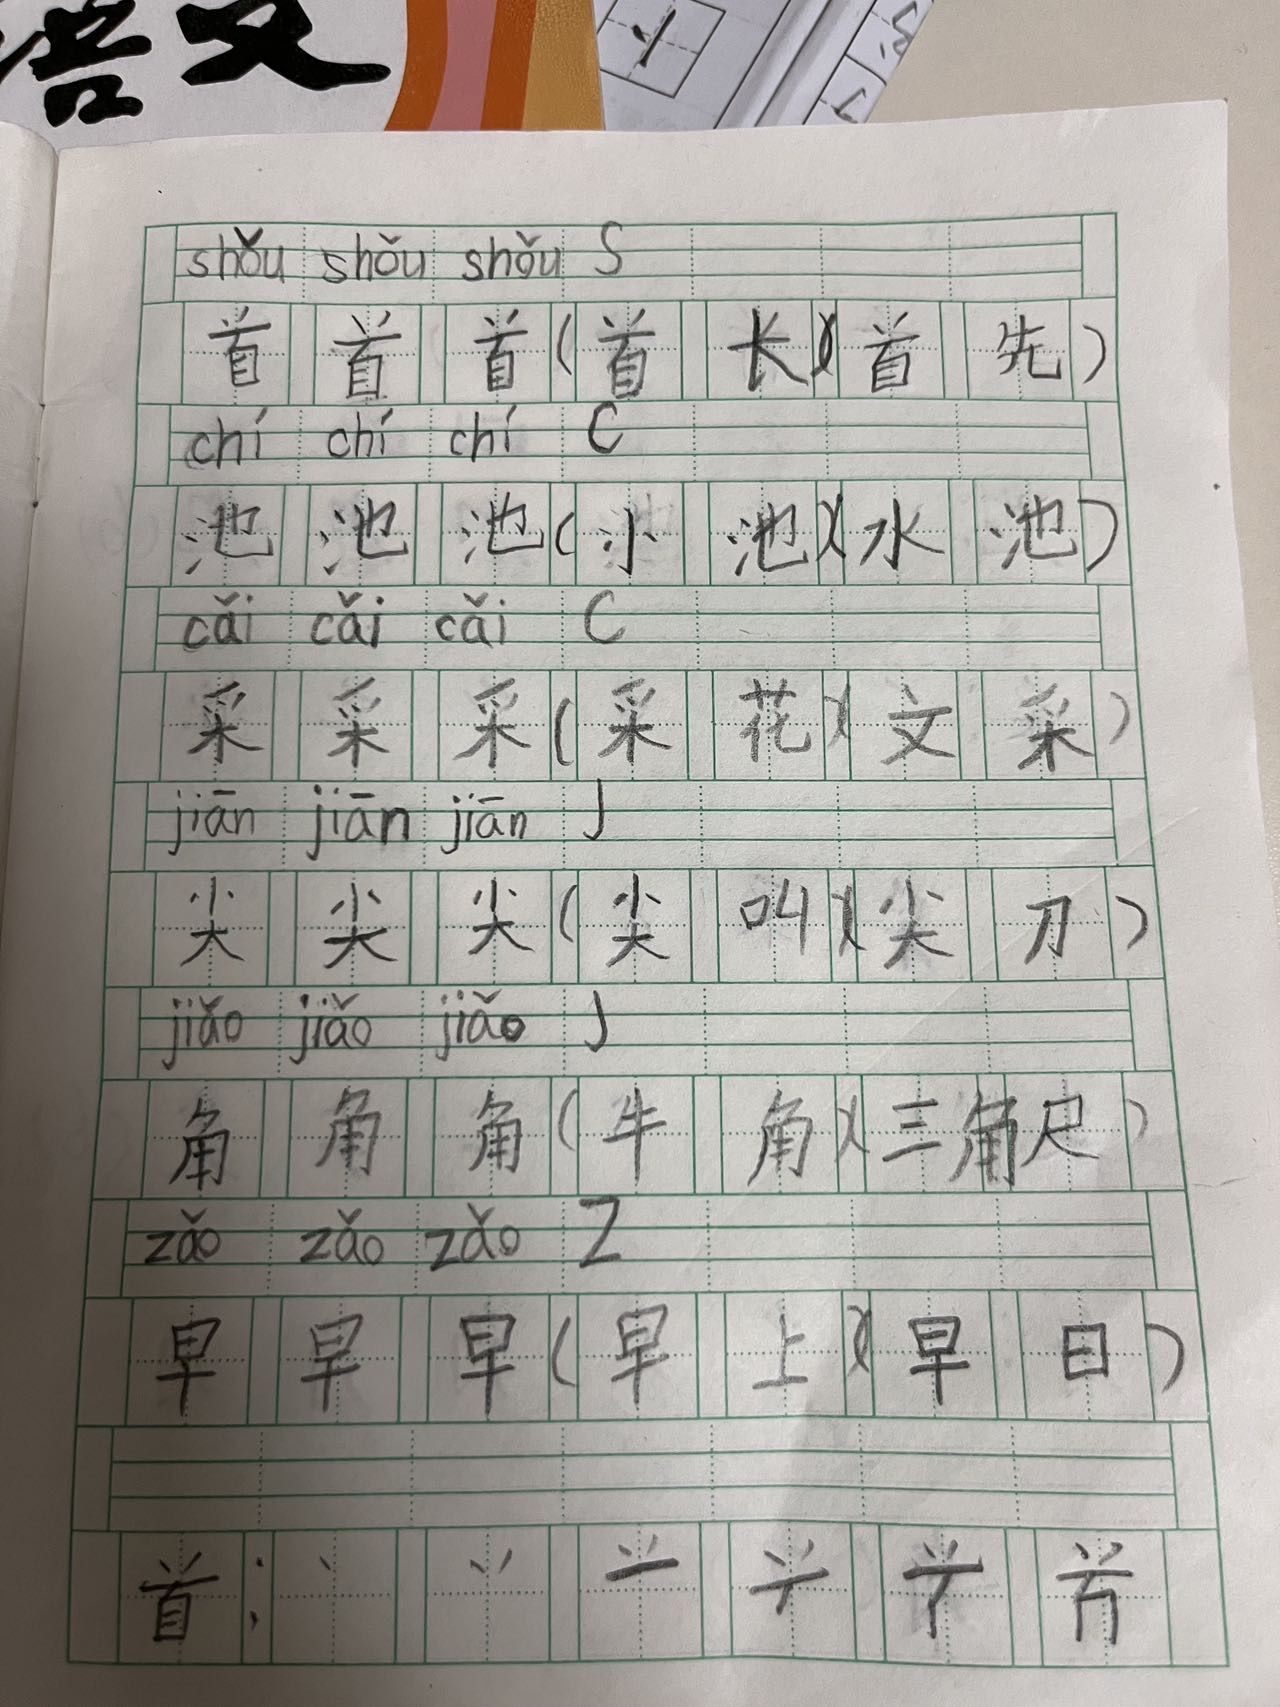 语文
shǒu shǒu shǒu S
首 首 首 (首 长)(首 先)
chí chí chí C
池 池 池 (小 池)(水 池)
cǎi cǎi cǎi C
采 采 采 (采 花)(文 采)
jiān jiān jiān J
尖 尖 尖 (尖 叫)(尖 刀)
jiǎo jiǎo jiǎo J
角 角 角 (牛 角)(三角尺)
zǎo zǎo zǎo Z
早 早 早 (早 上)(早 日)
首: